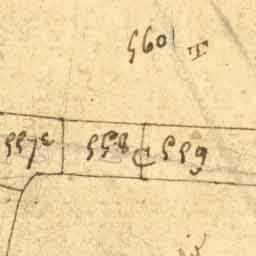 560
557c 558 559